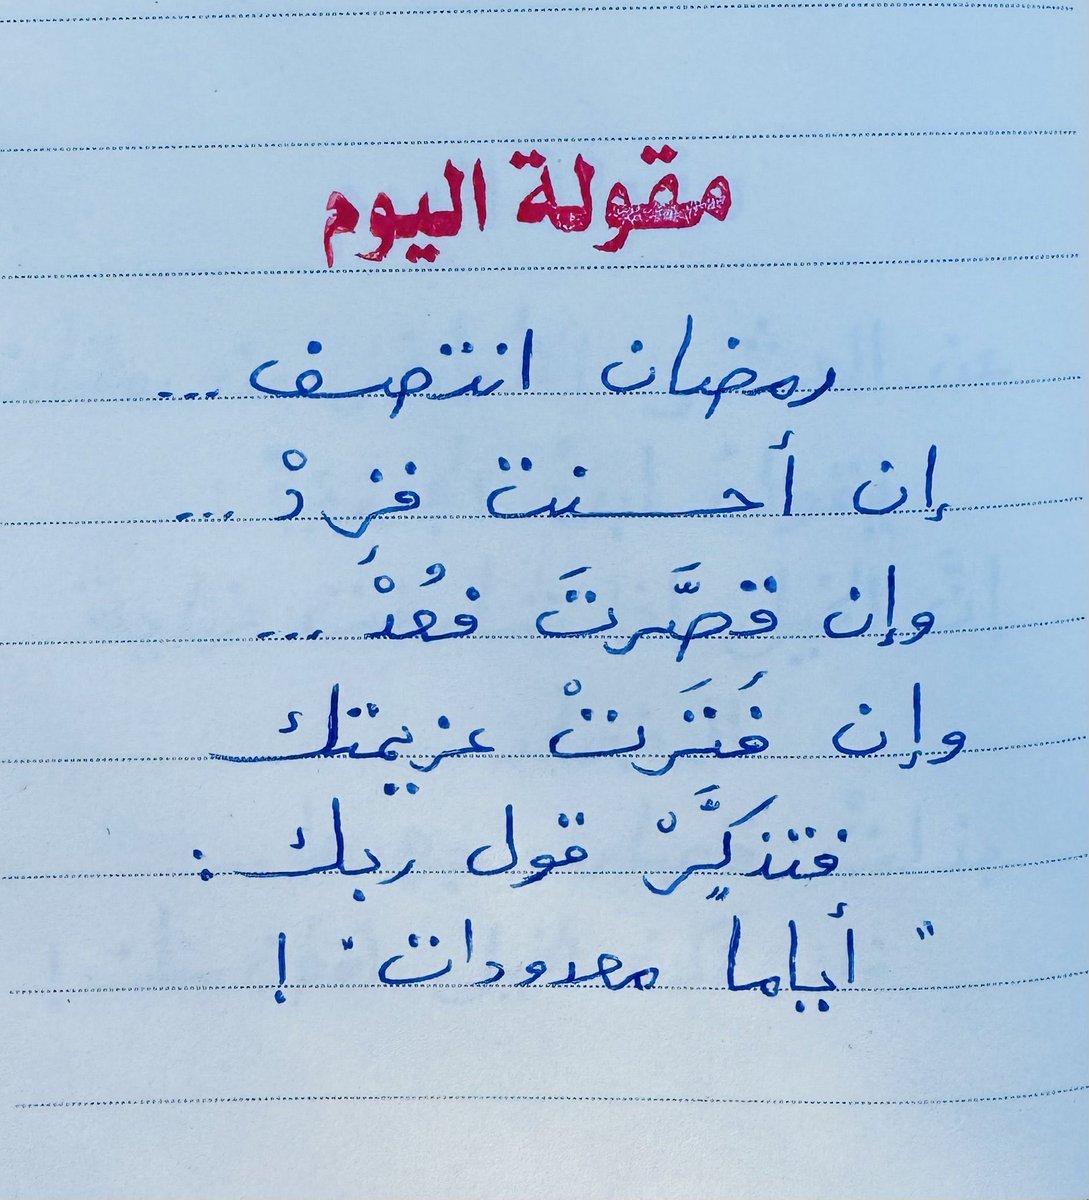 مقولة اليوم
رمضان انتصف ...
إن أحسنت فزدْ ...
وإن قصَّرتَ فعُدْ ...
وإن فَتَرَتْ عزيمتك
فتذكَّرْ قول ربك :
" أياماً معدودات " !